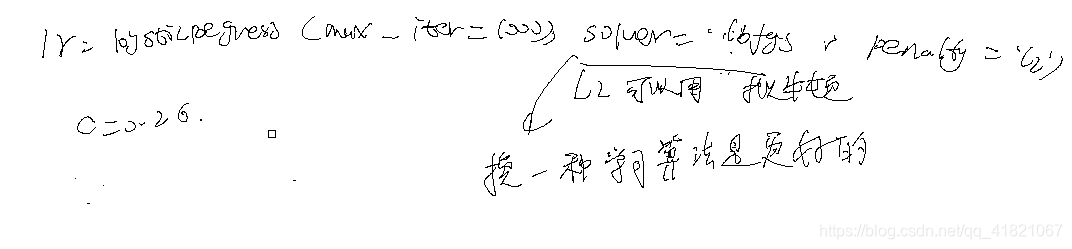 lr = logsticRegress (max_iter=1000) solver='lbfgs' penalty='l2')
L2 可以用 拟牛顿
C=0.26.
换一种学习算法是更好的
https://blog.csdn.net/qq_41821067